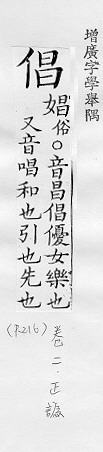 增廣字學舉隅
倡
娼俗○音昌倡優女樂也
又音唱和也引也先也
(P.216) 卷二·正譌